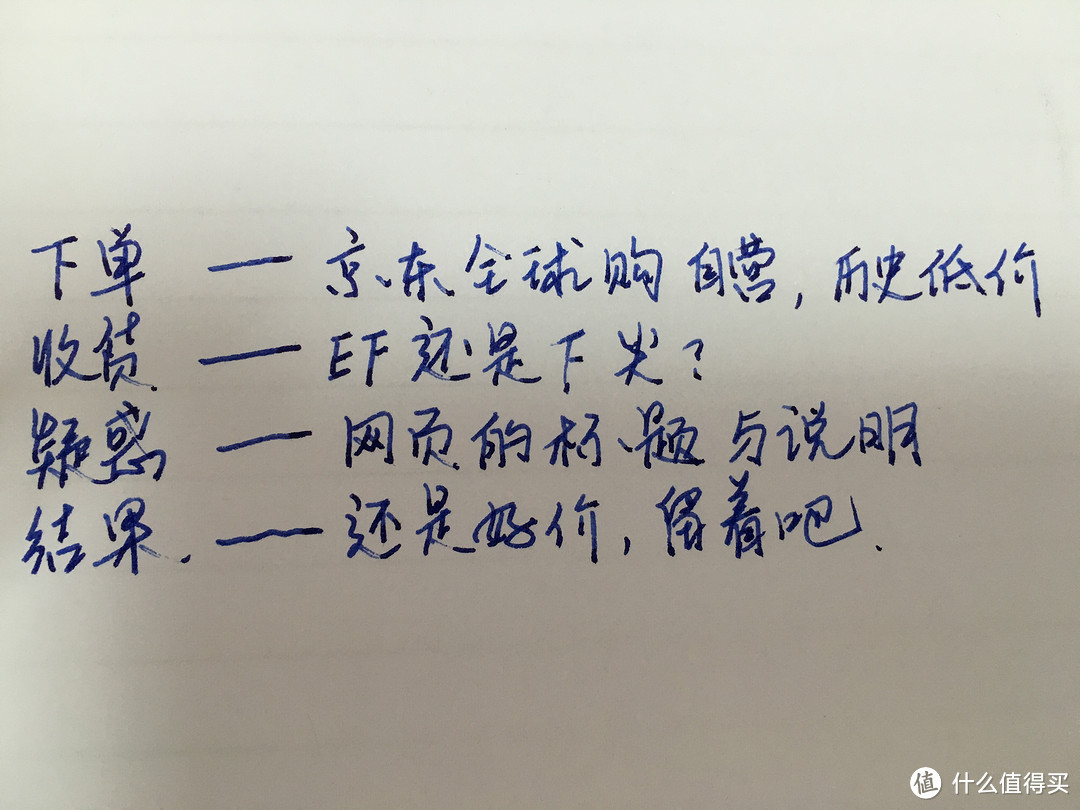 下单 — 京东全球购自营,历史低价
收货 — EF还是F尖?
疑惑 — 网页的标题与说明
结果. — 还是好价,留着吧.
值 什么值得买